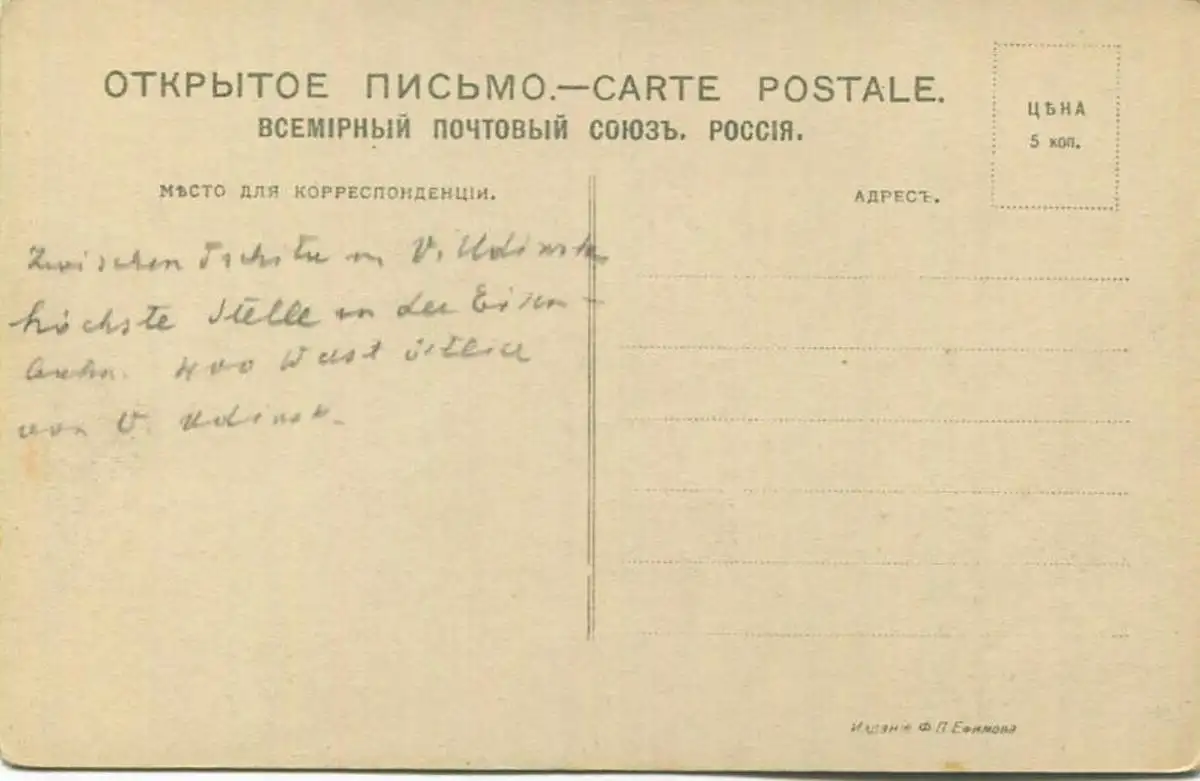 ОТКРЫТОЕ ПИСЬМО.—CARTE POSTALE.
ВСЕМІРНЫЙ ПОЧТОВЫЙ СОЮЗЪ. РОССІЯ.
ЦѢНА
5 коп.
МѢСТО ДЛЯ КОРРЕСПОНДЕНЦІИ.
АДРЕСЪ.
Zwischen Tschita u. V. Udinsk
höchste Stelle in der Eisen-
bahn. 400 Werst östlich
von V. Udinsk.
Изданіе Ф.П.Ефимова